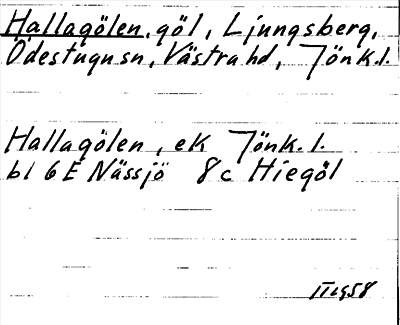 Hallagölen, göl, Ljungsberg,
Ödestugu sn, Västra hd, Jönk. l.
Hallagölen, ek Jönk. l.
bl 6 E Nässjö 8 c Hiegöl